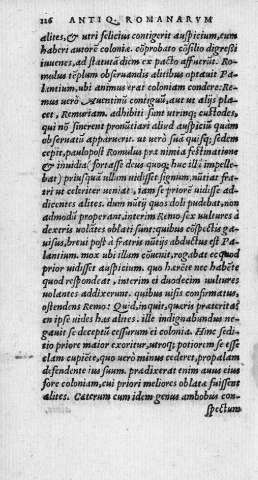 126 ANTIQ. ROMANARVM
alites, & utri felicius contigerit auspicium, eum
haberi autorē coloniæ. cōprobato cōsilio digreßi
iuuenes, ad statutā diem ex pacto affuerūt. Ro-
mulus tēplum obseruandis alitibus optauit Pa-
lantium, ubi animus erat coloniam condere: Re-
mus uerò Auentinū contiguū, aut ut alijs pla-
cet, Remuriam. adhibiti sunt utrinq; custodes,
qui nō sinerent pronūtiari aliud auspiciū quàm
obseruatū apparuerit. ut uerò suā quisq; sedem
cepit, paulopost Romulus præ nimia festinatione
& inuidia fortasse deus quoq; hùc illū impelle-
bat) priusquā ullum uidisset signum, nūtiat fra-
tri ut celeriter ueniat, tam se priorē uidisse ad-
dicentes alites. dum nūtij quos doli pudebat, non
admodū properant, interim Remo sex uultures à
dexteris uolātes oblati sunt: quibus cōspectis ga-
uisus, breui pòst à fratris nūtijs abductus est Pa-
lantium. mox ubi illam conuenit, rogabat ecquod
prior uidisset auspicium. quo hærēte nec habēte
quod respondeat, interim ei duodecim uultures
uolantes addixerunt. quibus uisis confirmatus,
ostendens Remo: Quid, inquit, quæris præterita?
en ipse uides has alites. ille indignabundus ne-
gauit se deceptū cessurum ei colonia. Hinc sedi-
tio priore maior exoritur, utroq; potiorem se esse
clam cupiēte, quo uerò minus cederet, propalam
defendente ius suum. prædixerat enim auus eius
fore coloniam, cui priori meliores oblatæ fuissent
alites. Cæterum cum idem genus ambobus con-
spectum